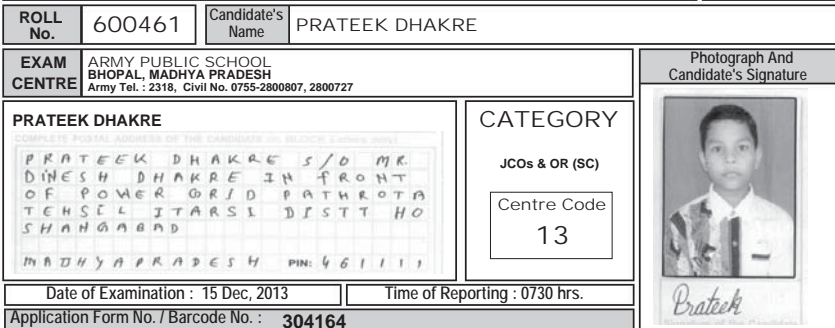 ROLL No. 600461 Candidate's Name PRATEEK DHAKRE
EXAM CENTRE
ARMY PUBLIC SCHOOL
BHOPAL, MADHYA PRADESH
Army Tel. : 2318, Civil No. 0755-2800807, 2800727
Photograph And
Candidate's Signature
PRATEEK DHAKRE
COMPLETE POSTAL ADDRESS OF THE CANDIDATE (in BLOCK Letters only)
PRATEEK DHAKRE S/O MR.
DINESH DHAKRE IN FRONT
OF POWER GRID PATHROTA
TEHSIL ITARSI DISTT HO
SHANGABAD
MADHYAPRADESH PIN: 461111
CATEGORY
JCOs & OR (SC)
Centre Code
13
Prateek
Signature of the Candidate
Date of Examination : 15 Dec, 2013 Time of Reporting : 0730 hrs.
Application Form No. / Barcode No. : 304164